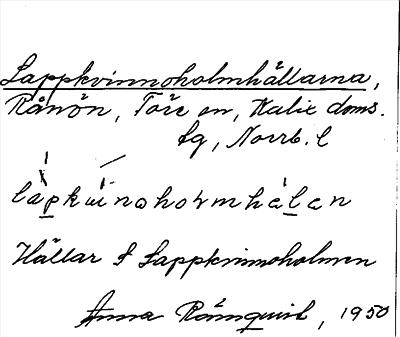 Lappkvinnoholmhällarna,
Rånön, Töre sn, Kalix doms.
sg, Norrb. l
lapkvinoholmhälan
Hällar S Lappkvinnoholmen
Anna Rönnquist, 1950